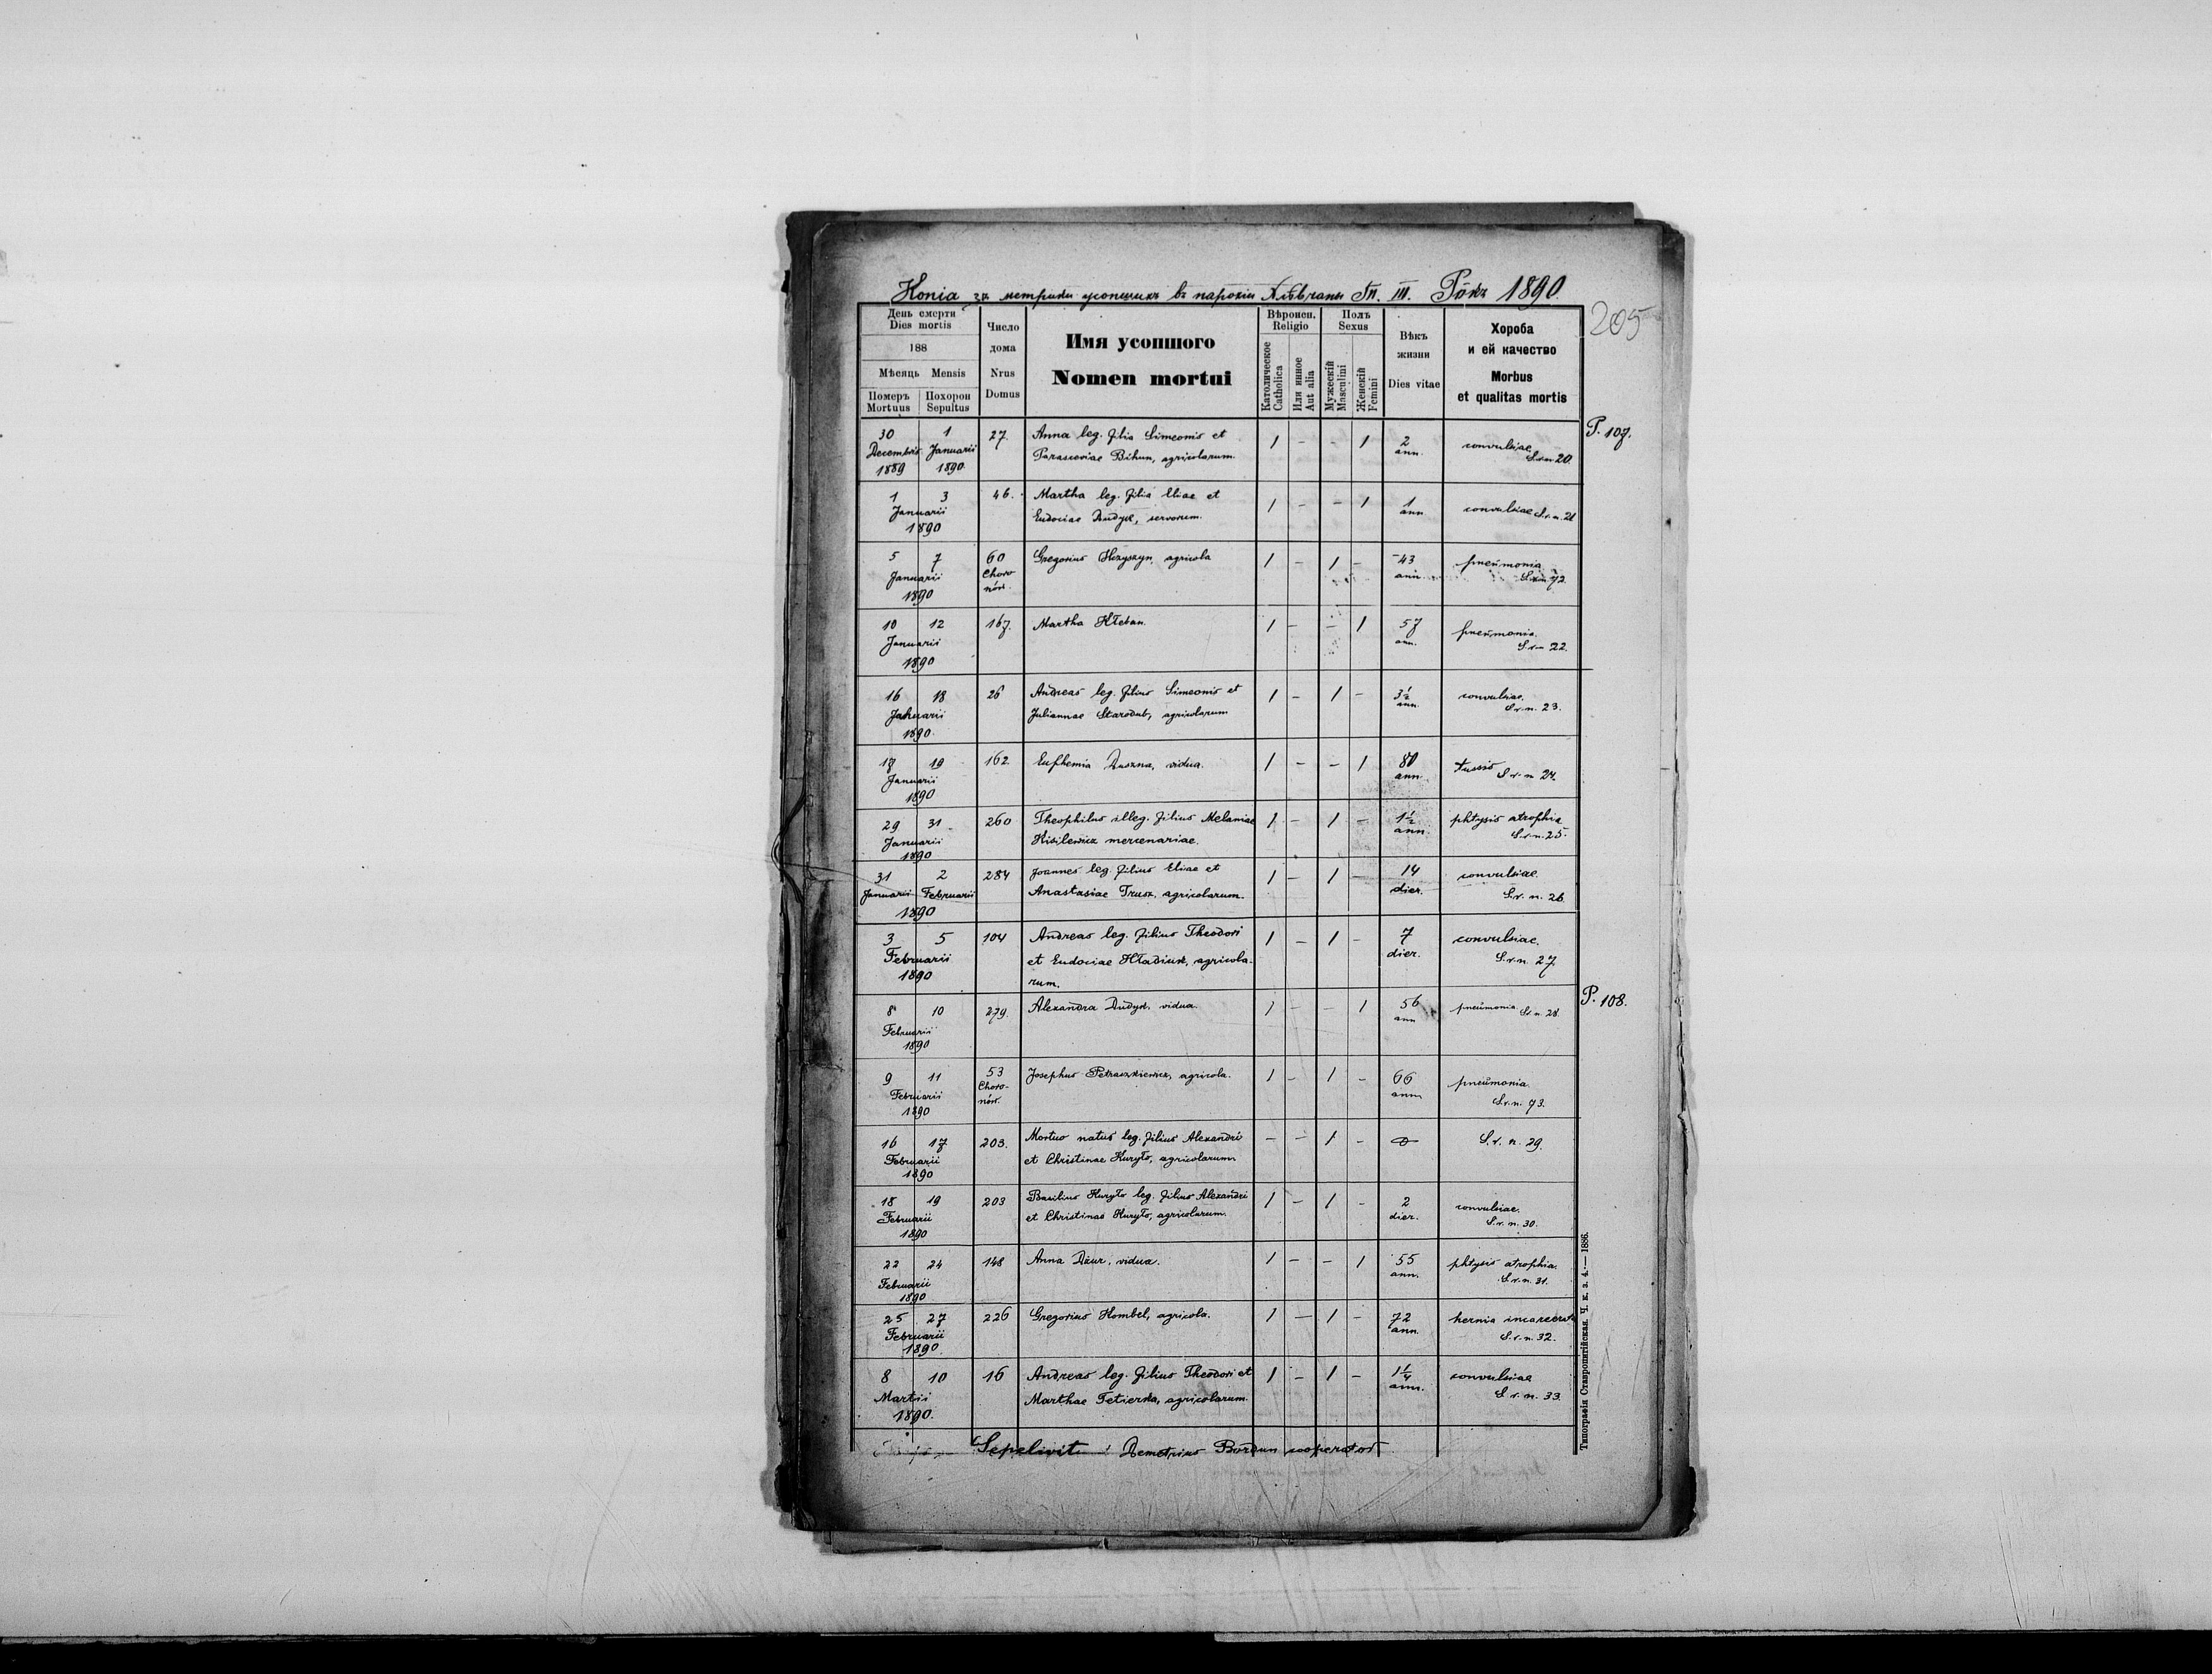 Копія зъ метрики усопшихъ въ парохіи Хлѣвчаны Тп. III. Рôкъ 1890
205
День смерти
Dies mortis
188
Мѣсяць Mensis
Померъ Mortuus
Похорон Sepultus
Число дома
Nrus Domus
Имя усопшого
Nomen mortui
Вѣроисп.
Religio
Католическое
Catholica
Или инное
Aut alia
Полъ
Sexus
Мужескій
Masculini
Женскій
Femini
Вѣкъ жизни
Dies vitae
Хороба
и ей качество
Morbus
et qualitas mortis
P. 107.
30 1 27. Anna leg. filia Simeonis et 1 - - 1 2 convulsiae
Decembris Januarii Parasceviae Bihun, agricolarum. ann. S.v.n. 20.
1889 1890
1 3 46. Martha leg. filia Eliae et 1 - - 1 1 convulsiae S.v.n. 21
Januarii Eudociae Dudyk, servorum. ann
1890
5 7 60 Gregorius Hryszyn, agricola 1 - 1 - 43 pneumonia
Januarii Choro- ann. S.v.n. 72.
1890 nów.
10 12 167. Martha Kłeban. 1 - - 1 57 pneumonia.
Januarii ann. S.v.n. 22.
1890
16 18 26 Andreas leg. filius Simeonis et 1 - 1 - 3½ convulsiae.
Januarii Juliannae Starodub, agricolarum ann. S.v.n. 23.
1890.
17 19 162. Euphemia Duszna, vidua. 1 - - 1 80 tussis S.v.n. 24.
Januarii ann.
1890
29 31 260 Theophilus illeg. filius Melaniae 1 - 1 - 1½ phtysis atrophia
Januarii Kisilewicz mercenariae. ann. S.v.n. 25.
1890
31 2 284 Joannes leg. filius Eliae et 1 - 1 - 14 convulsiae.
Januarii Februarii Anastasiae Trusz, agricolarum. dier. S.v.n. 26.
1890
3 5 104 Andreas leg. filius Theodori 1 - 1 - 7 convulsiae.
Februarii et Eudociae Hładiuk, agricola- dier. S.v.n. 27.
1890 rum.
P. 108.
8 10 279. Alexandra Dudyk, vidua. 1 - - 1 56 pneumonia S.v.n. 28.
Februarii ann
1890
9 11 53 Josephus Petraszkiewicz, agricola. 1 - 1 - 66 pneumonia.
Februarii Choro- ann. S.v.n. 73.
1890 nów.
16 17 203. Mortuo natus leg. filius Alexandri - - 1 - 0 S.v.n. 29.
Februarii et Christinae Kuryło, agricolarum.
1890
18 19 203 Basilius Kuryło leg. filius Alexandri 1 - 1 - 2 convulsiae.
Februarii et Christinae Kuryło, agricolarum. dier. S.v.n. 30.
1890
22 24 148 Anna Dziur, vidua. 1 - - 1 55 phtysis atrophia.
Februarii ann. S.v.n. 31.
1890
25 27 226 Gregorius Hombel, agricola. 1 - 1 - 72 hernia incarcerata
Februarii ann. S.v.n. 32.
1890.
8 10 16 Andreas leg. filius Theodori et 1 - 1 - 1¼ convulsiae
Martii Marthae Tetierka, agricolarum. ann. S.v.n. 33.
1890.
Sepelivit: Demetrius Bordun cooperator
Типографія Ставропигійская. Ч. к. з. 4. — 1886.